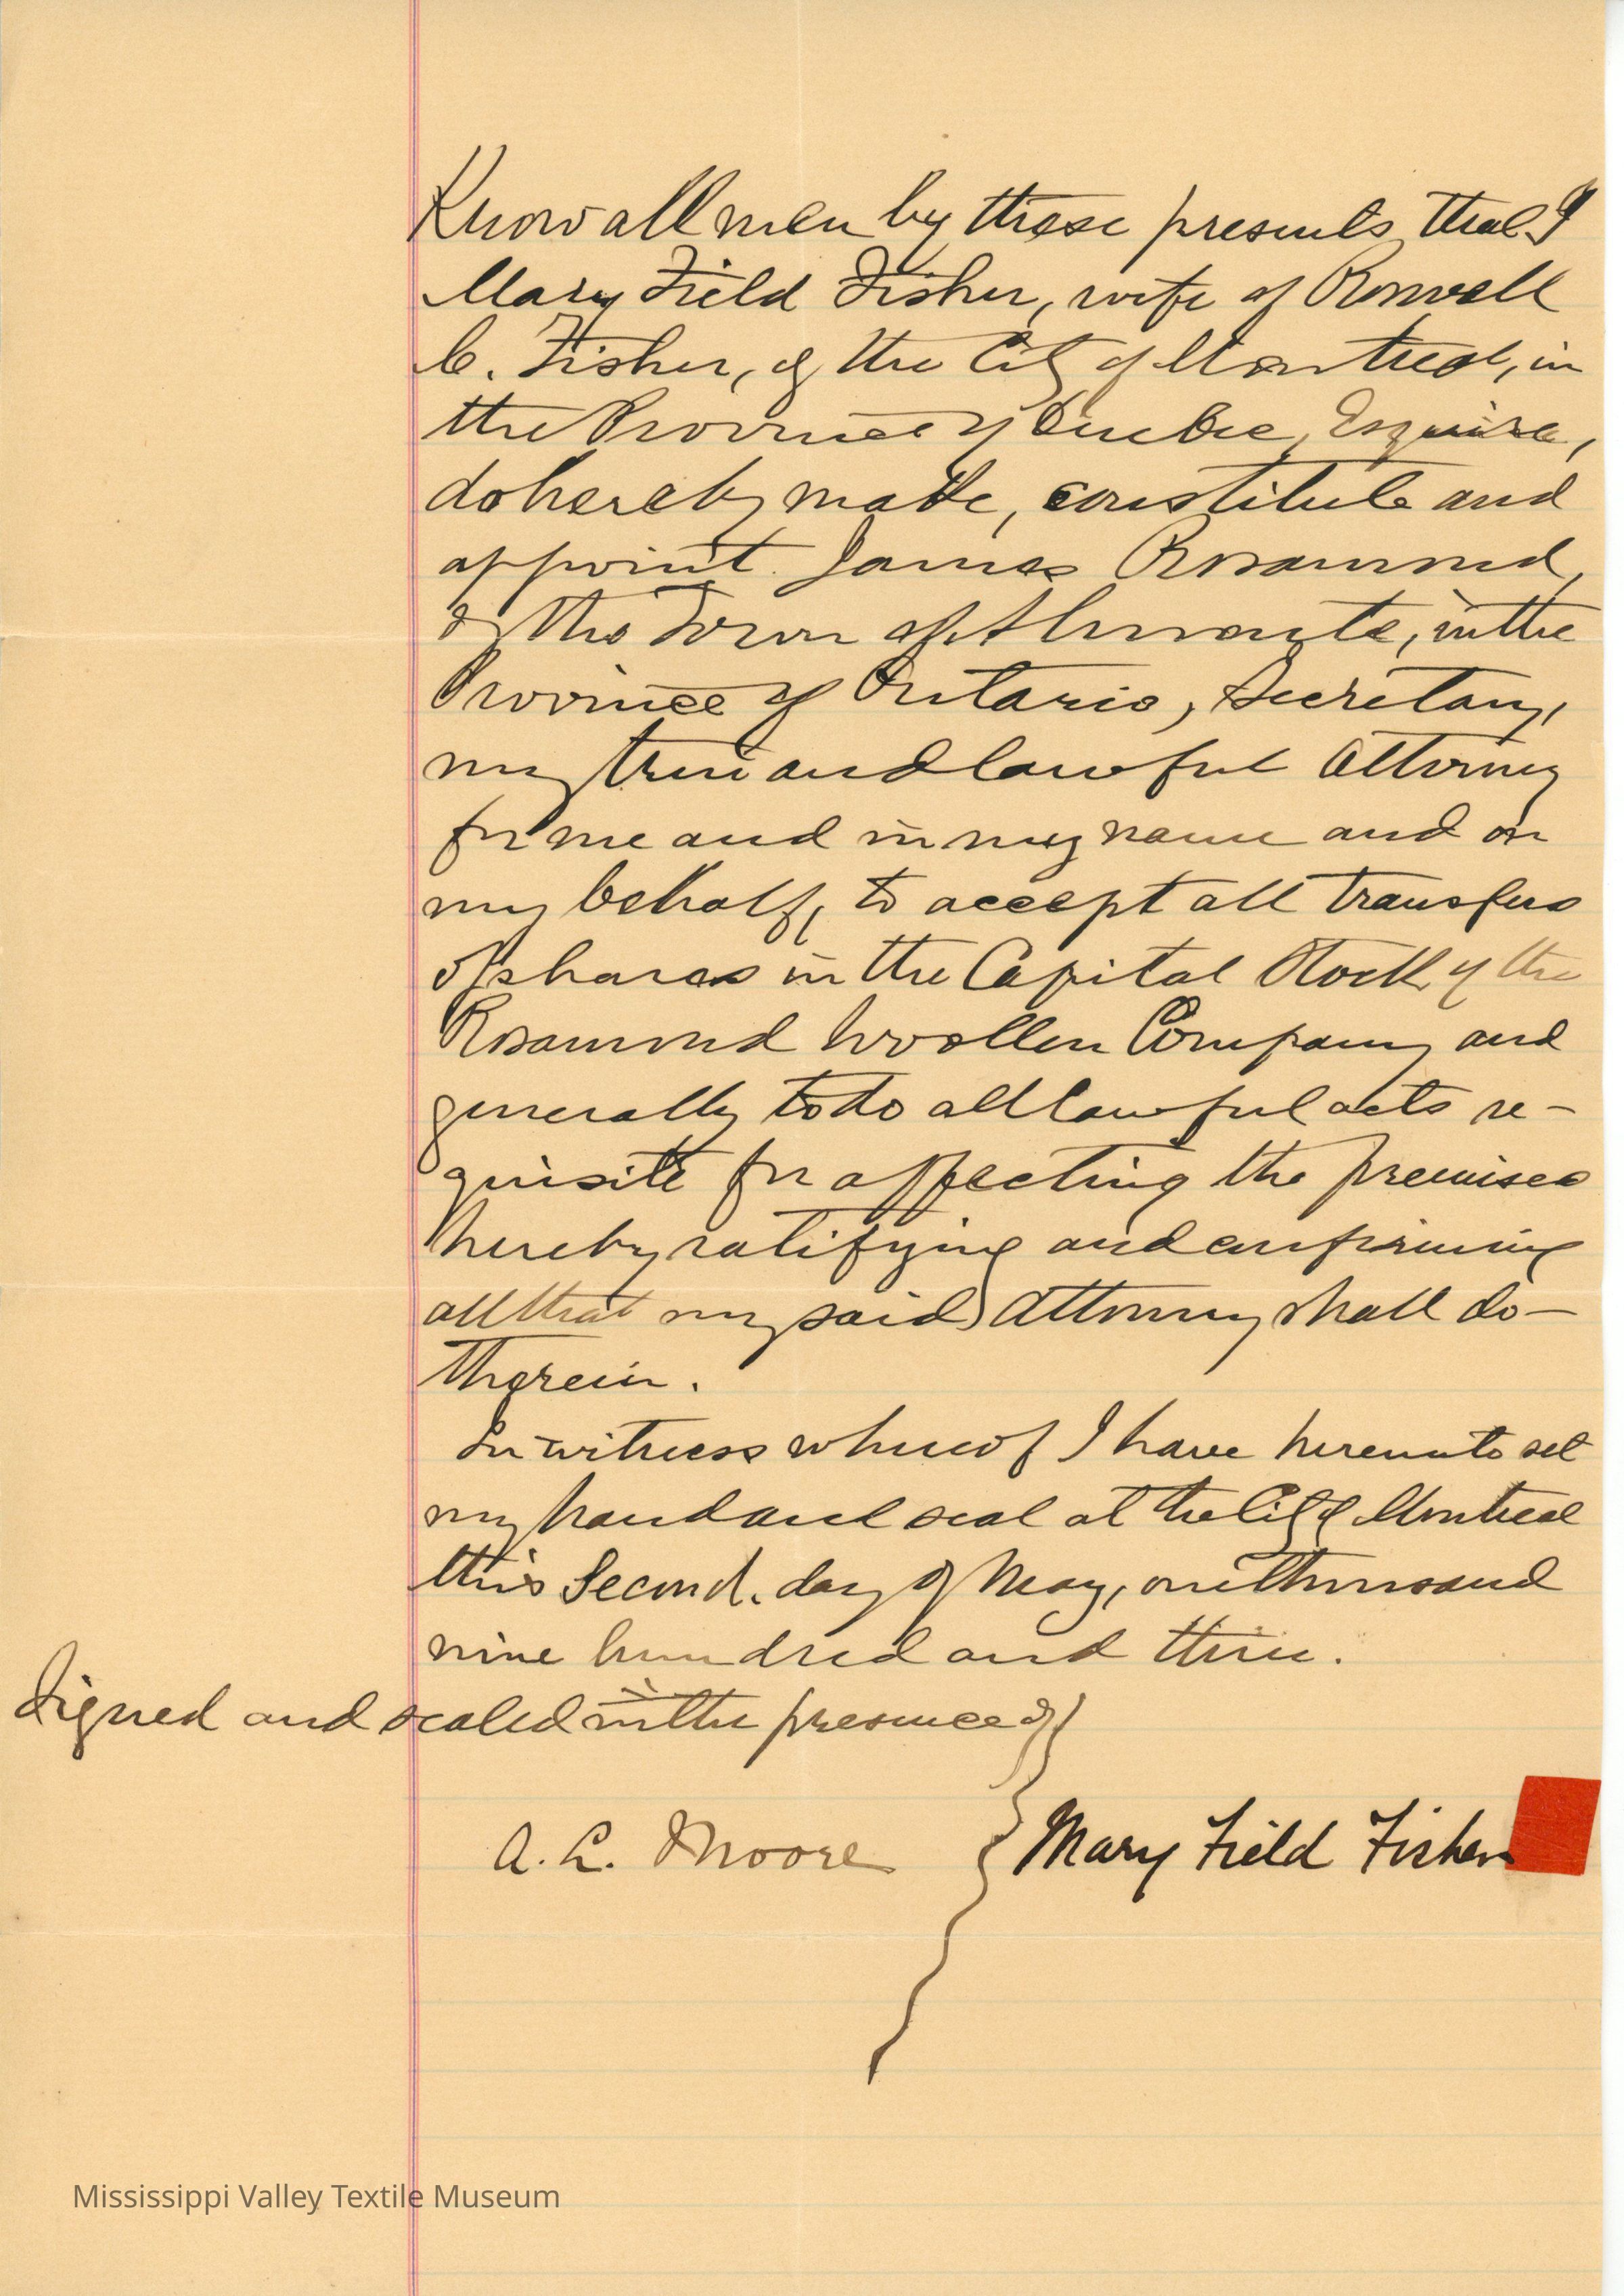 Know all men by these presents that I
Mary Field Fisher, wife of Roswell
C. Fisher, of the City of Montreal, in
the Province of Quebec, Esquire,
do hereby make, constitute and
appoint James Rosamond,
of the Town of Almonte, in the
Province of Ontario, Secretary,
my true and lawful Attorney
for me and in my name and on
my behalf, to accept all transfers
of shares in the Capital Stock of the
Rosamond Woollen Company and
generally to do all lawful acts re-
quisite for affecting the premises
hereby ratifying and confirming
all that my said Attorney shall do-
therein.
In witness whereof I have hereunto set
my hand and seal at the City of Montreal
this Second. day of May, one thousand
nine hundred and three.
Signed and sealed in the presence of
A. L. Moore
Mary Field Fisher
Mississippi Valley Textile Museum